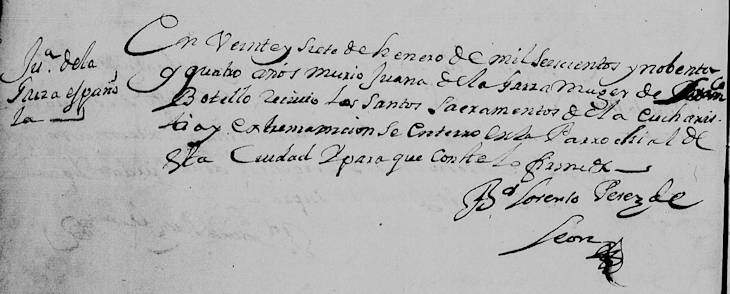 Ju.ª de la
Garza españo
la
En Veinte y siete de henero de mil seiscientos y nobenta
y quatro años murio Juana de la Garza Muger de
Botello recivio los Santos Sacramentos de el a Eucharis
tia y extremauncion se enterro en la Parrochial de
esta Ciudad Y para que conste lo firme
B.r Lorenso Perez de
Leon